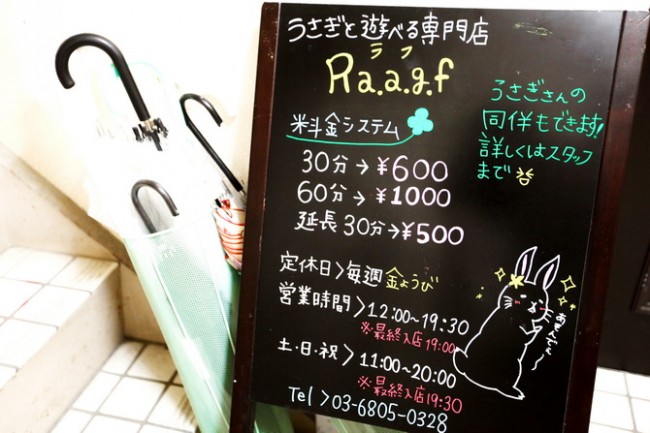 うさぎと遊べる専門店
ラフ
Ra.a.g.f
うさぎさんの
同伴もできます!
詳しくはスタッフ
まで
料金システム
30分→¥600
60分→¥1000
延長30分→¥500
定休日>毎週金ようび
営業時間>12:00~19:30
※最終入店19:00
土・日・祝>11:00~20:00
※最終入店19:30
Tel>03-6805-0328
あそんでぇ